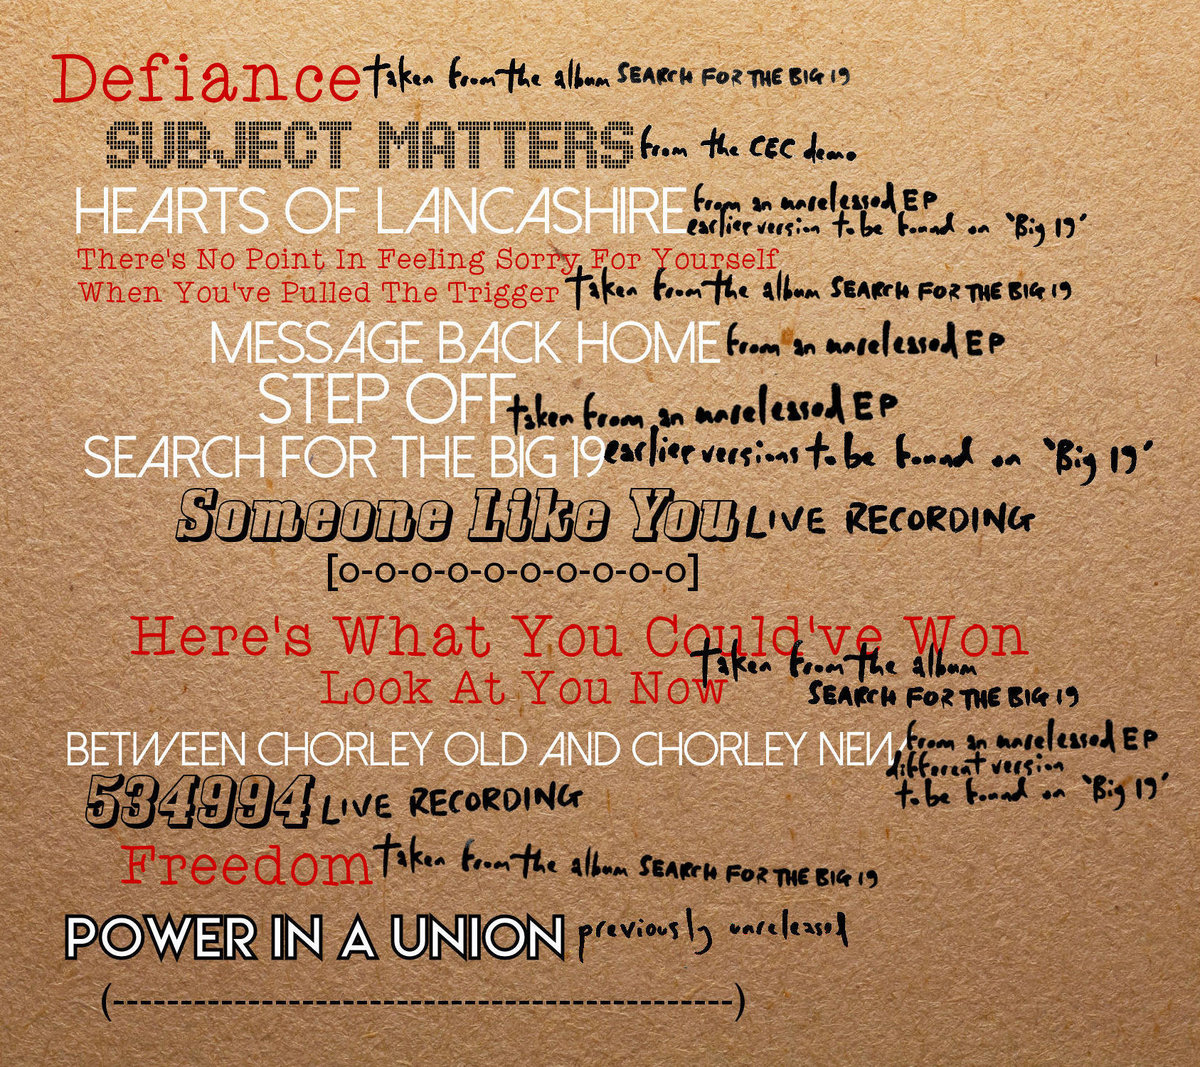 Defiance taken from the album SEARCH FOR THE BIG 19
SUBJECT MATTERS from the CEC demo
HEARTS OF LANCASHIRE from an unreleased EP
earlier version to be found on 'Big 19'
There's No Point In Feeling Sorry For Yourself
When You've Pulled The Trigger taken from the album SEARCH FOR THE BIG 19
MESSAGE BACK HOME from an unreleased EP
STEP OFF taken from an unreleased EP
SEARCH FOR THE BIG 19 earlier versions to be found on 'Big 19'
Someone Like You LIVE RECORDING
[o-o-o-o-o-o-o-o-o-o]
Here's What You Could've Won
taken from the album
Look At You Now SEARCH FOR THE BIG 19
BETWEEN CHORLEY OLD AND CHORLEY NEW from an unreleased EP
different version
to be found on 'Big 19'
534994 LIVE RECORDING
Freedom taken from the album SEARCH FOR THE BIG 19
POWER IN A UNION previously unreleased
(----------------------------------------------)